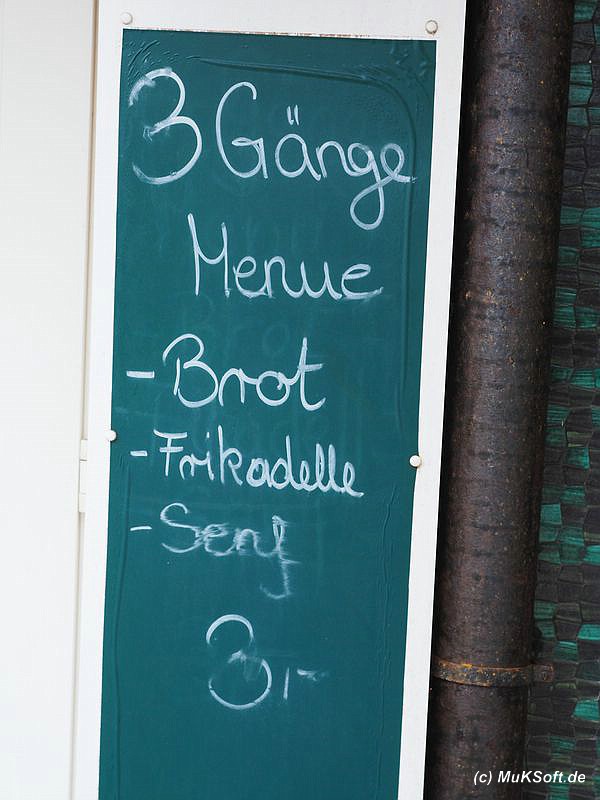 3 Gänge
Menue
- Brot
- Frikadelle
- Senf
3,-
(c) MuKSoft.de